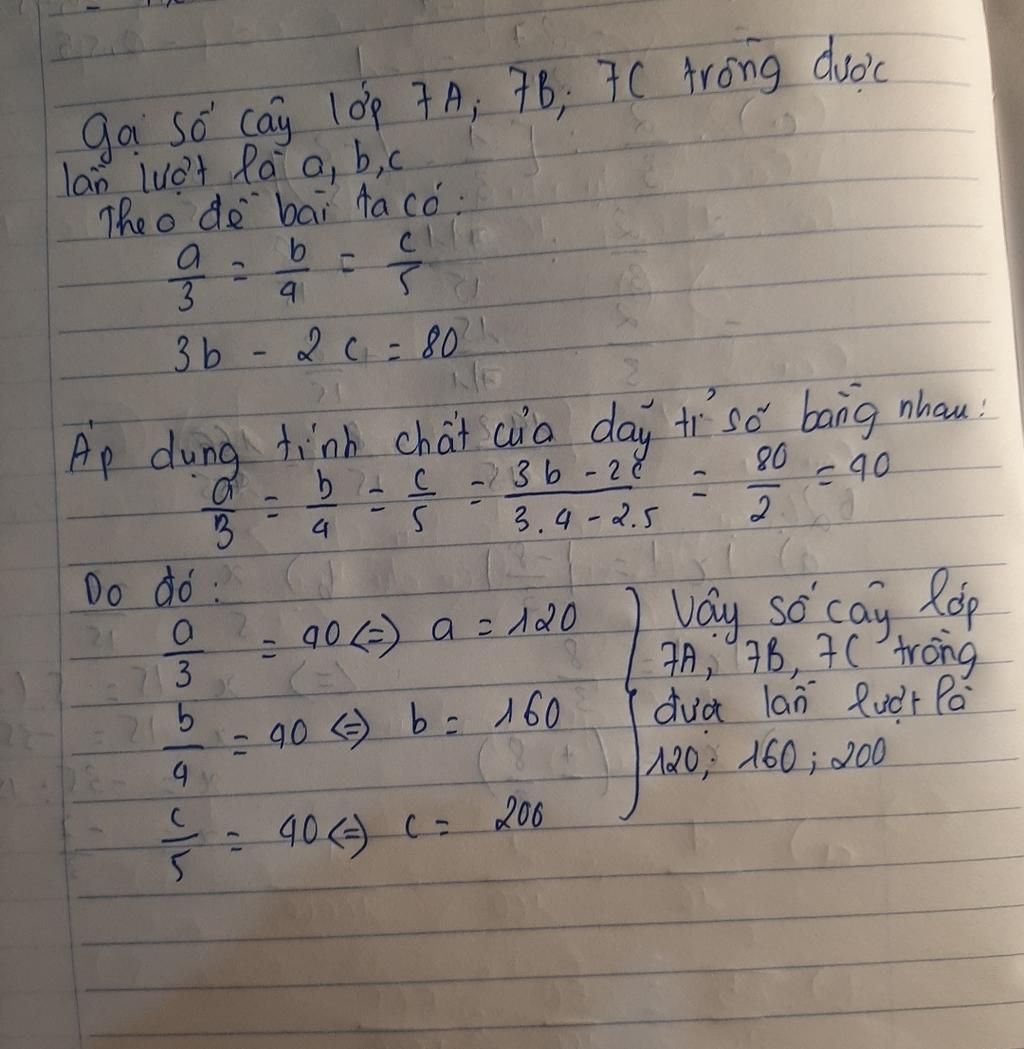 Gọi số cây lớp 7A; 7B; 7C trồng được
lần lượt là a, b, c
Theo đề bài ta có:
a/3 = b/4 = c/5
3b - 2c = 80
Áp dụng tính chất của dãy tỉ số bằng nhau:
a/3 = b/4 = c/5 = (3b - 2c)/(3.4 - 2.5) = 80/2 = 40
Do đó:
a/3 = 40 <=> a = 120
b/4 = 40 <=> b = 160
c/5 = 40 <=> c = 200
Vậy số cây lớp
7A, 7B, 7C trồng
được lần lượt là
120; 160; 200